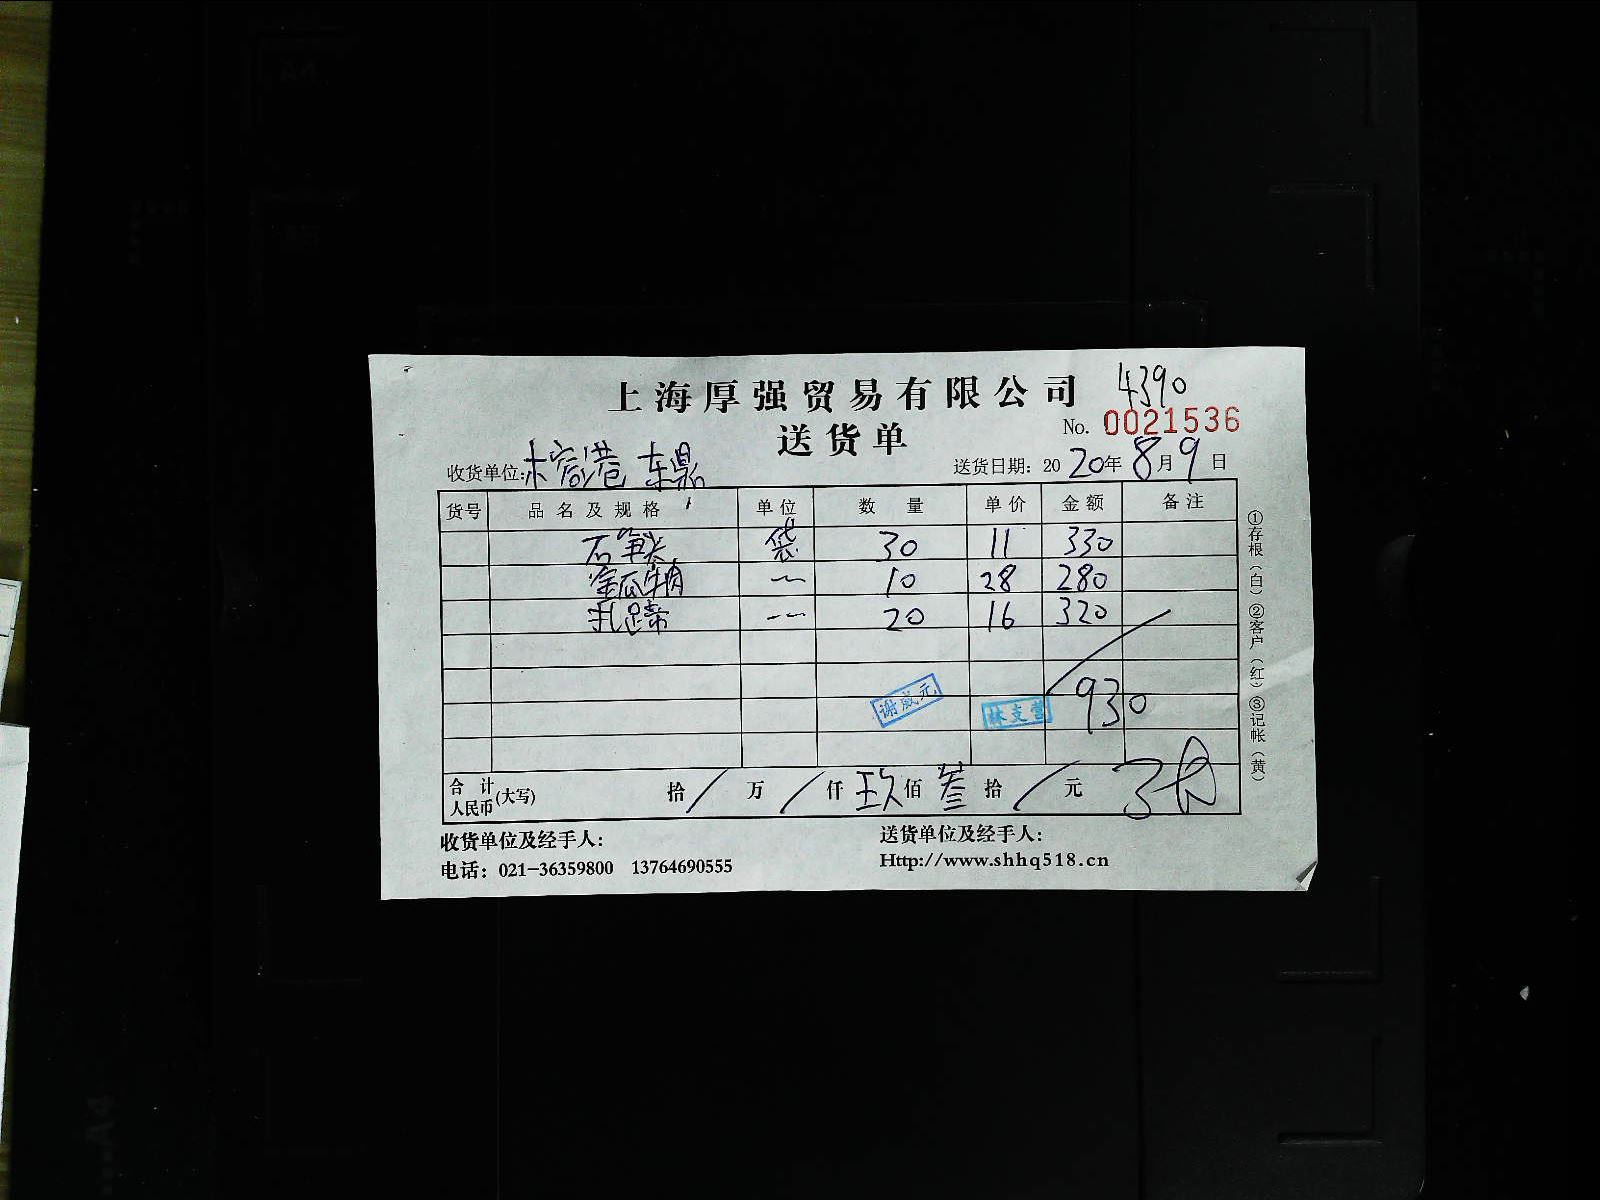 上海厚强贸易有限公司 4390
No. 0021536
送货单
收货单位: 港 东鼎 送货日期: 2020年8月9日
货号 品名及规格 单位 数量 单价 金额 备注
石笋尖 袋 30 11 330
金瓜牛肉 〃 10 28 280
扎蹄 〃 20 16 320
谢成元 林支营 930
合计人民币(大写) 拾/万/仟玖佰叁拾/元
收货单位及经手人: 送货单位及经手人:
电话: 021-36359800 13764690555 Http://www.shhq518.cn
①存根(白)②客户(红)③记帐(黄)